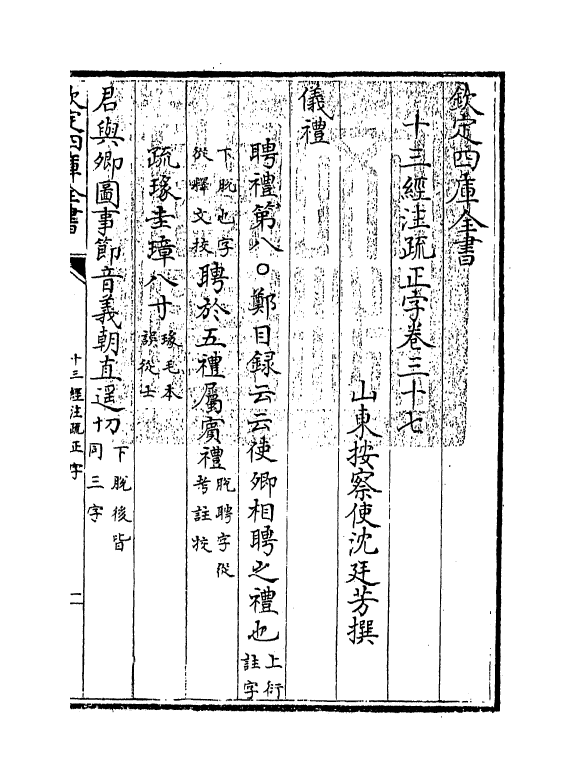 欽定四庫全書
十三經注疏正字卷三十七
山東按察使沈廷芳撰
儀禮
聘禮第八○鄭目録云云使卿相聘之禮也上衍註字
下脫也字從釋文校聘於五禮屬賓禮脫聘字從考註挍
疏瑑圭璋八寸瑑毛本誤從土
君與卿圖事節音義朝直遥切下脫後皆同三字
欽定四庫全書
十三經注疏正字
一